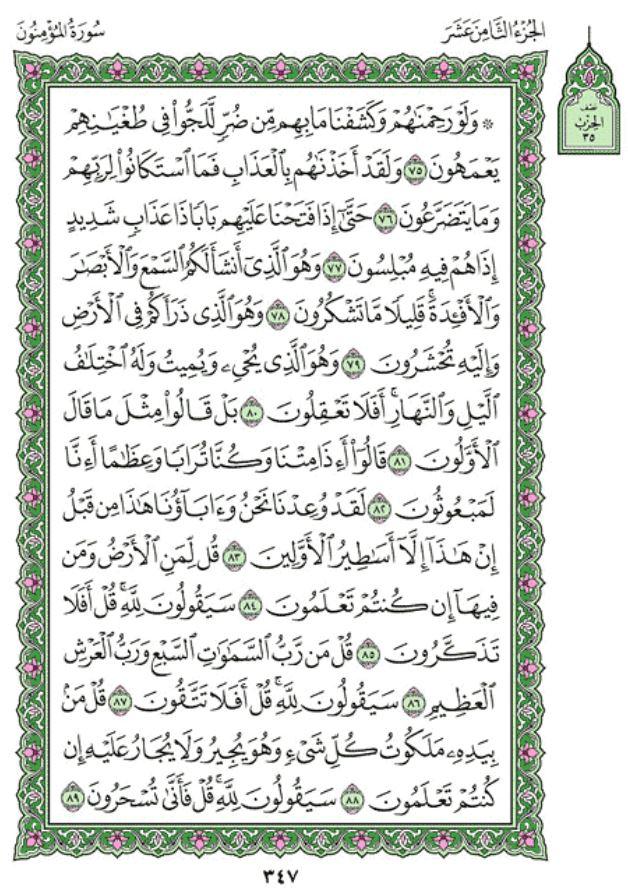 سُورَةُ المُؤْمِنُون
الجُزْءُ الثَّامِنَ عَشَرَ
نصف
الحِزب
٣٥
۞ وَلَوْ رَحِمْنَٰهُمْ وَكَشَفْنَا مَا بِهِم مِّن ضُرٍّ لَّلَجُّوا۟ فِى طُغْيَٰنِهِمْ
يَعْمَهُونَ ٧٥ وَلَقَدْ أَخَذْنَٰهُم بِٱلْعَذَابِ فَمَا ٱسْتَكَانُوا۟ لِرَبِّهِمْ
وَمَا يَتَضَرَّعُونَ ٧٦ حَتَّىٰٓ إِذَا فَتَحْنَا عَلَيْهِم بَابًا ذَا عَذَابٍ شَدِيدٍ
إِذَا هُمْ فِيهِ مُبْلِسُونَ ٧٧ وَهُوَ ٱلَّذِىٓ أَنشَأَ لَكُمُ ٱلسَّمْعَ وَٱلْأَبْصَٰرَ
وَٱلْأَفْـِٔدَةَ ۚ قَلِيلًا مَّا تَشْكُرُونَ ٧٨ وَهُوَ ٱلَّذِى ذَرَأَكُمْ فِى ٱلْأَرْضِ
وَإِلَيْهِ تُحْشَرُونَ ٧٩ وَهُوَ ٱلَّذِى يُحْىِۦ وَيُمِيتُ وَلَهُ ٱخْتِلَٰفُ
ٱلَّيْلِ وَٱلنَّهَارِ ۚ أَفَلَا تَعْقِلُونَ ٨٠ بَلْ قَالُوا۟ مِثْلَ مَا قَالَ
ٱلْأَوَّلُونَ ٨١ قَالُوٓا۟ أَءِذَا مِتْنَا وَكُنَّا تُرَابًا وَعِظَٰمًا أَءِنَّا
لَمَبْعُوثُونَ ٨٢ لَقَدْ وُعِدْنَا نَحْنُ وَءَابَآؤُنَا هَٰذَا مِن قَبْلُ
إِنْ هَٰذَآ إِلَّآ أَسَٰطِيرُ ٱلْأَوَّلِينَ ٨٣ قُل لِّمَنِ ٱلْأَرْضُ وَمَن
فِيهَآ إِن كُنتُمْ تَعْلَمُونَ ٨٤ سَيَقُولُونَ لِلَّهِ ۚ قُلْ أَفَلَا
تَذَكَّرُونَ ٨٥ قُلْ مَن رَّبُّ ٱلسَّمَٰوَٰتِ ٱلسَّبْعِ وَرَبُّ ٱلْعَرْشِ
ٱلْعَظِيمِ ٨٦ سَيَقُولُونَ لِلَّهِ ۚ قُلْ أَفَلَا تَتَّقُونَ ٨٧ قُلْ مَنۢ
بِيَدِهِۦ مَلَكُوتُ كُلِّ شَىْءٍ وَهُوَ يُجِيرُ وَلَا يُجَارُ عَلَيْهِ إِن
كُنتُمْ تَعْلَمُونَ ٨٨ سَيَقُولُونَ لِلَّهِ ۚ قُلْ فَأَنَّىٰ تُسْحَرُونَ ٨٩
٣٤٧